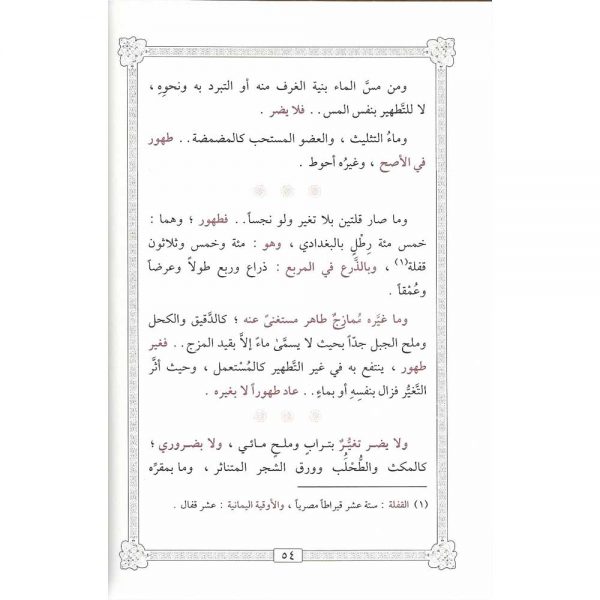 ومن مسَّ الماء بنية الغرف منه أو التبرد به ونحوِهِ ،
لا للتَّطهير بنفس المس . . فلا يضر .
وماءُ التثليث ، والعضو المستحب كالمضمضة . . طهور
في الأصح ، وغيرُه أحوط .
وما صار قلتين بلا تغير ولو نجساً . . فطهور ؛ وهما :
خمس مئة رِطْلٍ بالبغدادي ، وهو : مئة وخمس وثلاثون
قفلة(١) ، وبالذَّرع في المربع : ذراع وربع طولاً وعرضاً
وعُمْقاً .
وما غيَّره مُمازِجٌ طاهر مستغنىً عنه ؛ كالدَّقيق والكحل
وملح الجبل جدّاً بحيث لا يسمَّىٰ ماءً إلاَّ بقيد المزج . . فغير
طهور ، ينتفع به في غير التَّطهير كالمُسْتعمل ، وحيث أثَّر
التَّغيُّر فزال بنفسِهِ أو بماءٍ . . عاد طهوراً لا بغيره .
ولا يضر تغيُّرٌ بتراب وملح مائي ، ولا بضروري ؛
كالمكث والطُّحْلُب وورق الشجر المتناثر ، وما بمقرِّه
(١) القفلة : ستة عشر قيراطاً مصرياً ، والأوقية اليمانية : عشر قفال .
٥٤